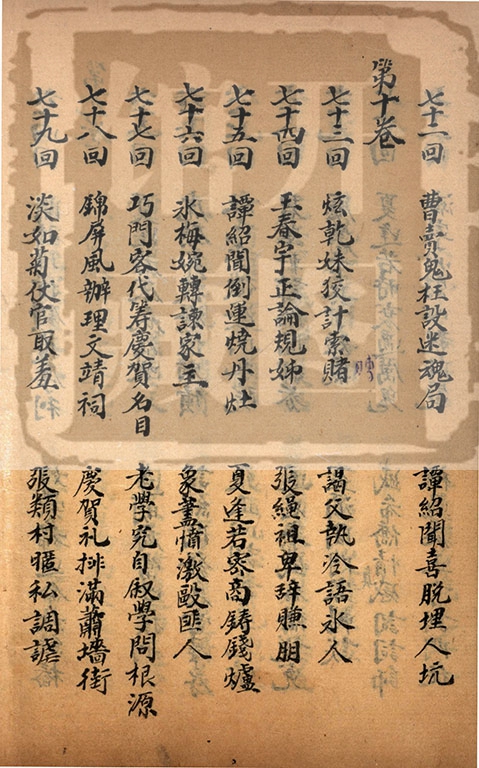 七十二回 曹卖鬼枉設迷魂局 譚紹聞喜脱埋人坑
第十卷
七十三回 炫乾妹狡計索賭 謁父執冷語冰人
七十四回 王春宇正論規姊 張繩祖卑辞賺朋
七十五回 譚紹聞倒運燒丹灶 夏逢若密商鑄錢爐
七十六回 冰梅婉轉諫家主 象藎憤激毆匪人
七十七回 巧門客代筹慶賀名目 老學究自叙學問根源
七十八回 錦屏風辦理文靖祠 慶賀礼排滿蕭墻街
七十九回 淡如菊仗官取羞 張類村昵私調謔